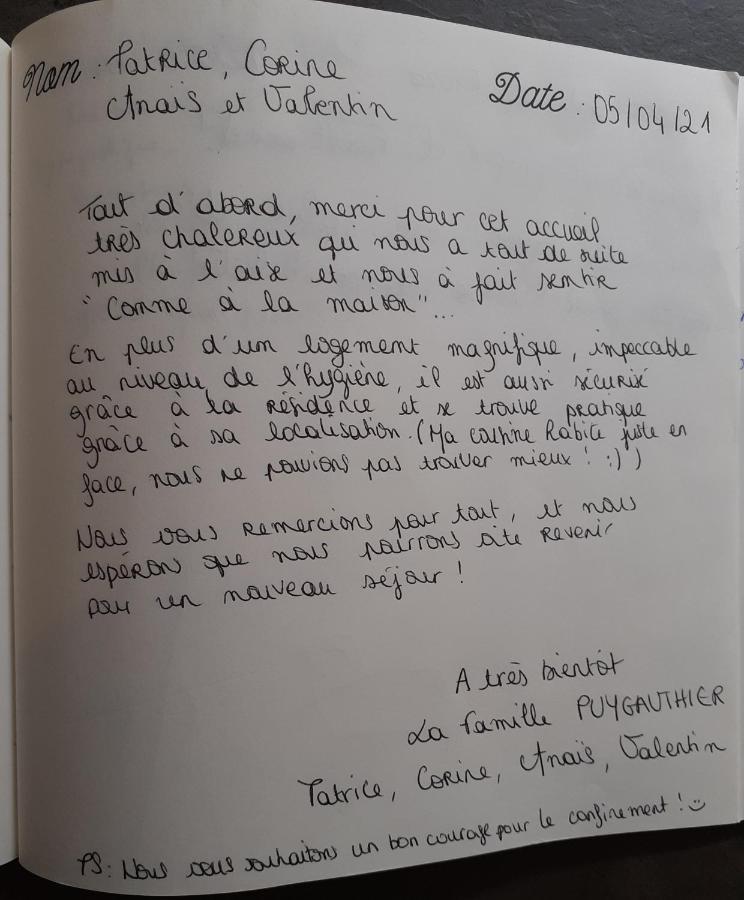 Nom : Patrice, Corine
Anaïs et Valentin
Date : 05/04/21
Tout d'abord, merci pour cet accueil
très chalereux qui nous a tout de suite
mis à l'aise et nous à fait sentir
"Comme à la maison"...
En plus d'un logement magnifique, impeccable
au niveau de l'hygiène, il est aussi sécurisé
grâce à la résidence et se trouve pratique
grâce à sa localisation. (Ma cousine habite juste en
face, nous ne pouvions pas trouver mieux ! :) )
Nous vous remercions pour tout, et nous
espérons que nous pourrons vite revenir
pour un nouveau séjour !
A très bientôt
La famille PUYGAUTHIER
Patrice, Corine, Anaïs, Valentin
PS : Nous vous souhaitons un bon courage pour le confinement ! :)